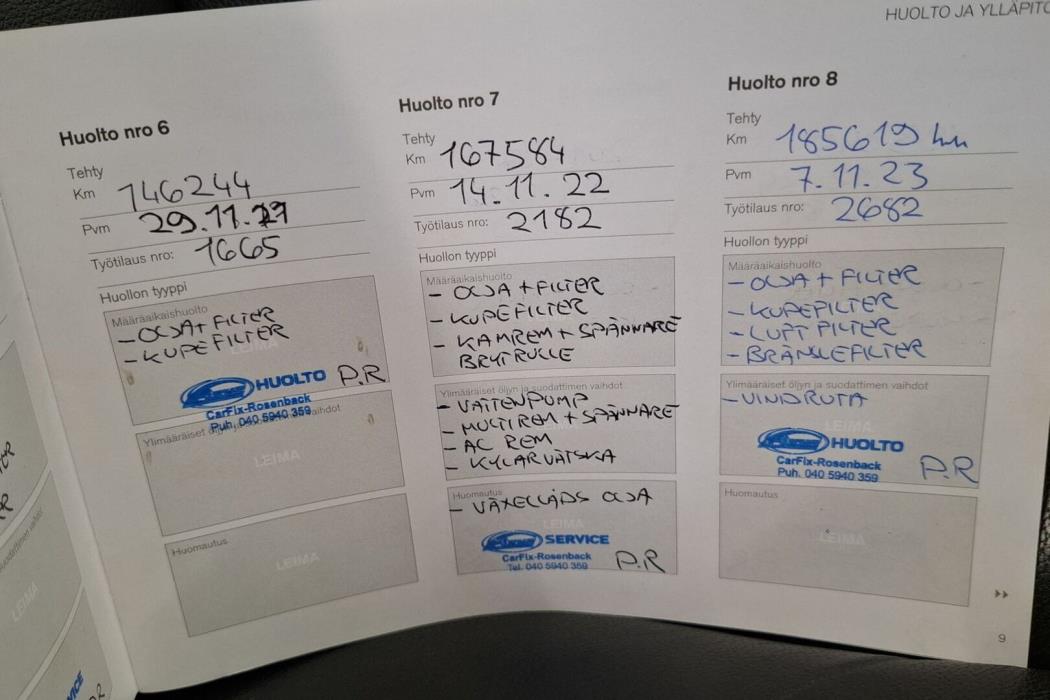 HUOLTO JA YLLÄPITO
Huolto nro 6
Tehty
Km 146244
Pvm 29.11.
Työtilaus nro: 1665
Huollon tyyppi
Määräaikaishuolto
- OLJA + FILTER
- KUPEFILTER
LEIMA
HUOLTO P.R
CarFix-Rosenback
Puh. 040 5940 359
Ylimääräiset öljyn ja suodattimen vaihdot
LEIMA
Huomautus
LEIMA
Huolto nro 7
Tehty
Km 167584
Pvm 14.11.22
Työtilaus nro: 2182
Huollon tyyppi
Määräaikaishuolto
- OLJA + FILTER
- KUPEFILTER
- KAMREM + SPÄNNARE
BRYTRULLE
Ylimääräiset öljyn ja suodattimen vaihdot
- VATTENPUMP
- MULTIREM + SPÄNNARE
- AC REM
- KYLARVÄTSKA
Huomautus
- VÄXELLÅDS OLJA
LEIMA
SERVICE
CarFix-Rosenback
Tel. 040 5940 359 P.R
Huolto nro 8
Tehty
Km 185619 km
Pvm 7.11.23
Työtilaus nro: 2682
Huollon tyyppi
Määräaikaishuolto
- OLJA + FILTER
- KUPEFILTER
- LUFT FILTER
- BRÄNSLEFILTER
Ylimääräiset öljyn ja suodattimen vaihdot
- VINDRUTA
LEIMA
HUOLTO
CarFix-Rosenback
Puh. 040 5940 359 P.R
Huomautus
LEIMA
9